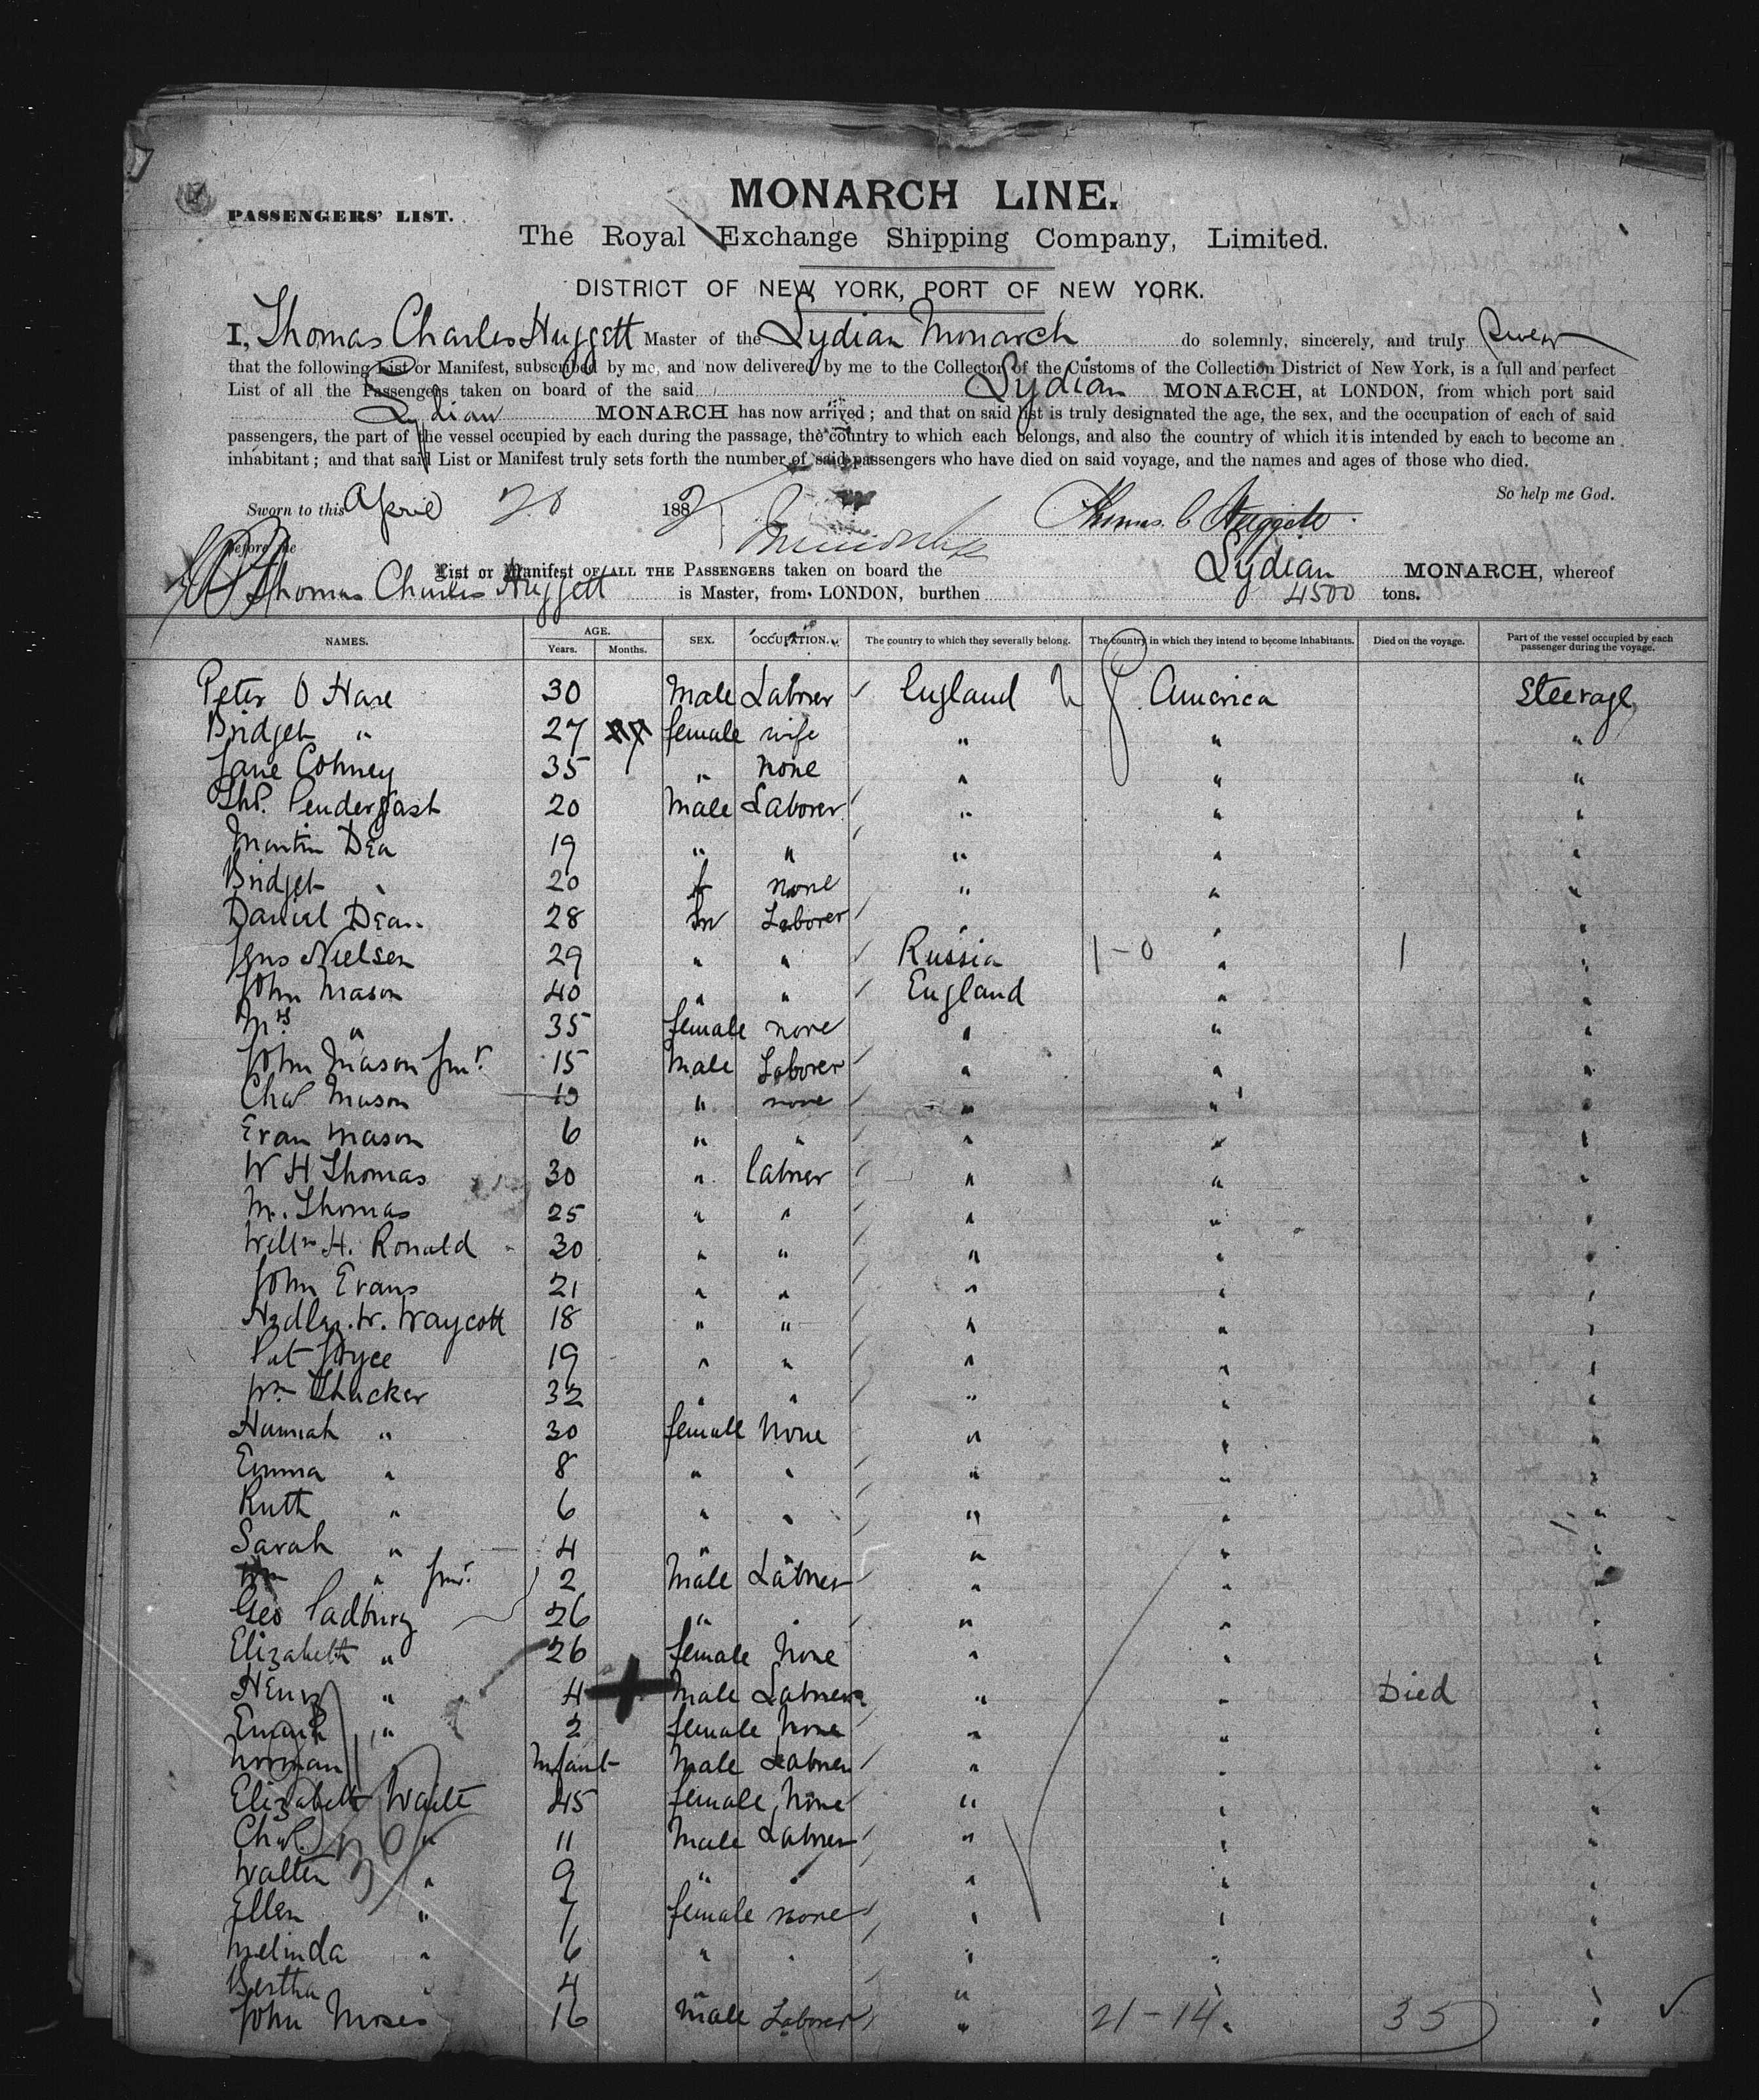 PASSENGERS' LIST.
MONARCH LINE.
The Royal Exchange Shipping Company, Limited.
DISTRICT OF NEW YORK, PORT OF NEW YORK.
I, Thomas Charles Huggett Master of the Lydian Monarch do solemnly, sincerely, and truly swear
that the following List or Manifest, subscribed by me, and now delivered by me to the Collector of the Customs of the Collection District of New York, is a full and perfect
List of all the Passengers taken on board of the said Lydian MONARCH, at LONDON, from which port said
Lydian MONARCH has now arrived; and that on said list is truly designated the age, the sex, and the occupation of each of said
passengers, the part of the vessel occupied by each during the passage, the country to which each belongs, and also the country of which it is intended by each to become an
inhabitant; and that said List or Manifest truly sets forth the number of said passengers who have died on said voyage, and the names and ages of those who died.
So help me God.
Sworn to this April 28 1882 Thomas C Huggett
before me
List or Manifest OF ALL THE PASSENGERS taken on board the Lydian MONARCH, whereof
Thomas Charles Huggett is Master, from LONDON, burthen 4500 tons.
NAMES. AGE. Years. Months. SEX. OCCUPATION. The country to which they severally belong. The country in which they intend to become inhabitants. Died on the voyage. Part of the vessel occupied by each passenger during the voyage.
Peter O Hare 30 Male Labrer England America Steerage
Bridget " 27 female wife " " "
Jane Cohney 35 " none " " "
Thos. Pendergast 20 Male Laborer " " "
Martin Dea 19 " " " " "
Bridget " 20 f none " " "
Daniel Dean 28 m Laborer " " "
Jens Nielsen 29 " " Russia 1-0 " 1 "
John Mason 40 " " England " "
Mrs " 35 female none " " "
John Mason Junr 15 Male Laborer " " "
Chas Mason 10 " none " " "
Evan Mason 6 " " " " "
W H Thomas 30 " labrer " " "
M. Thomas 25 " " " " "
Willm H. Ronald 30 " " " " "
John Evans 21 " " " " "
Hedley. W. Waycott 18 " " " " "
Pat Joyce 19 " " " " "
Wm Thucker 32 " " " " "
Hannah " 30 female None " " "
Emma " 8 " " " " "
Ruth " 6 " " " " "
Sarah " 4 " " " " "
Wm " Junr. 2 Male Labrer " " "
Geo Padbury 26 " " " " "
Elizabeth " 26 female None " " "
Henry " 4 Male Labrer " " Died "
" 2 female None " " "
Norman Infant Male Labrer " " "
Elizabeth Waite 45 female None " " "
Chas. " 11 Male Labrer " " "
Walter " 9 " " " " "
Ellen " 7 female none " " "
Melinda " 6 " " " " "
Bertha " 4 " " " "
John Moses 16 Male Laborer " 21-14 " 35 "